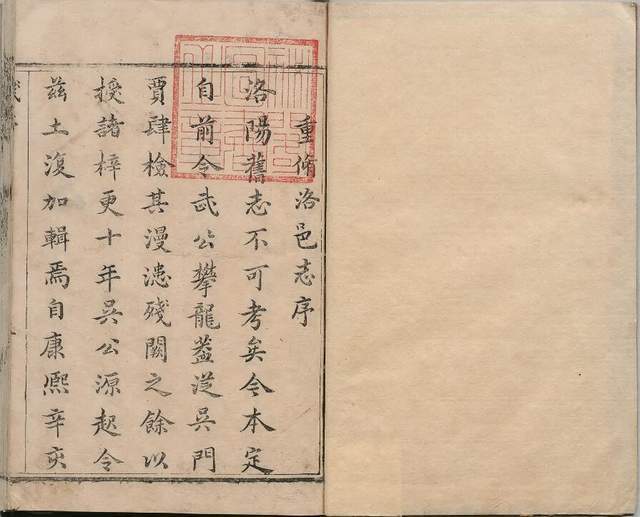 重脩洛邑志序
洛陽舊志不可考矣今本定
自前令武公攀龍葢從吳門
賈肆檢其漫漶殘闕之餘以
授諸梓更十年吳公源起令
茲土復加輯焉自康熙辛亥